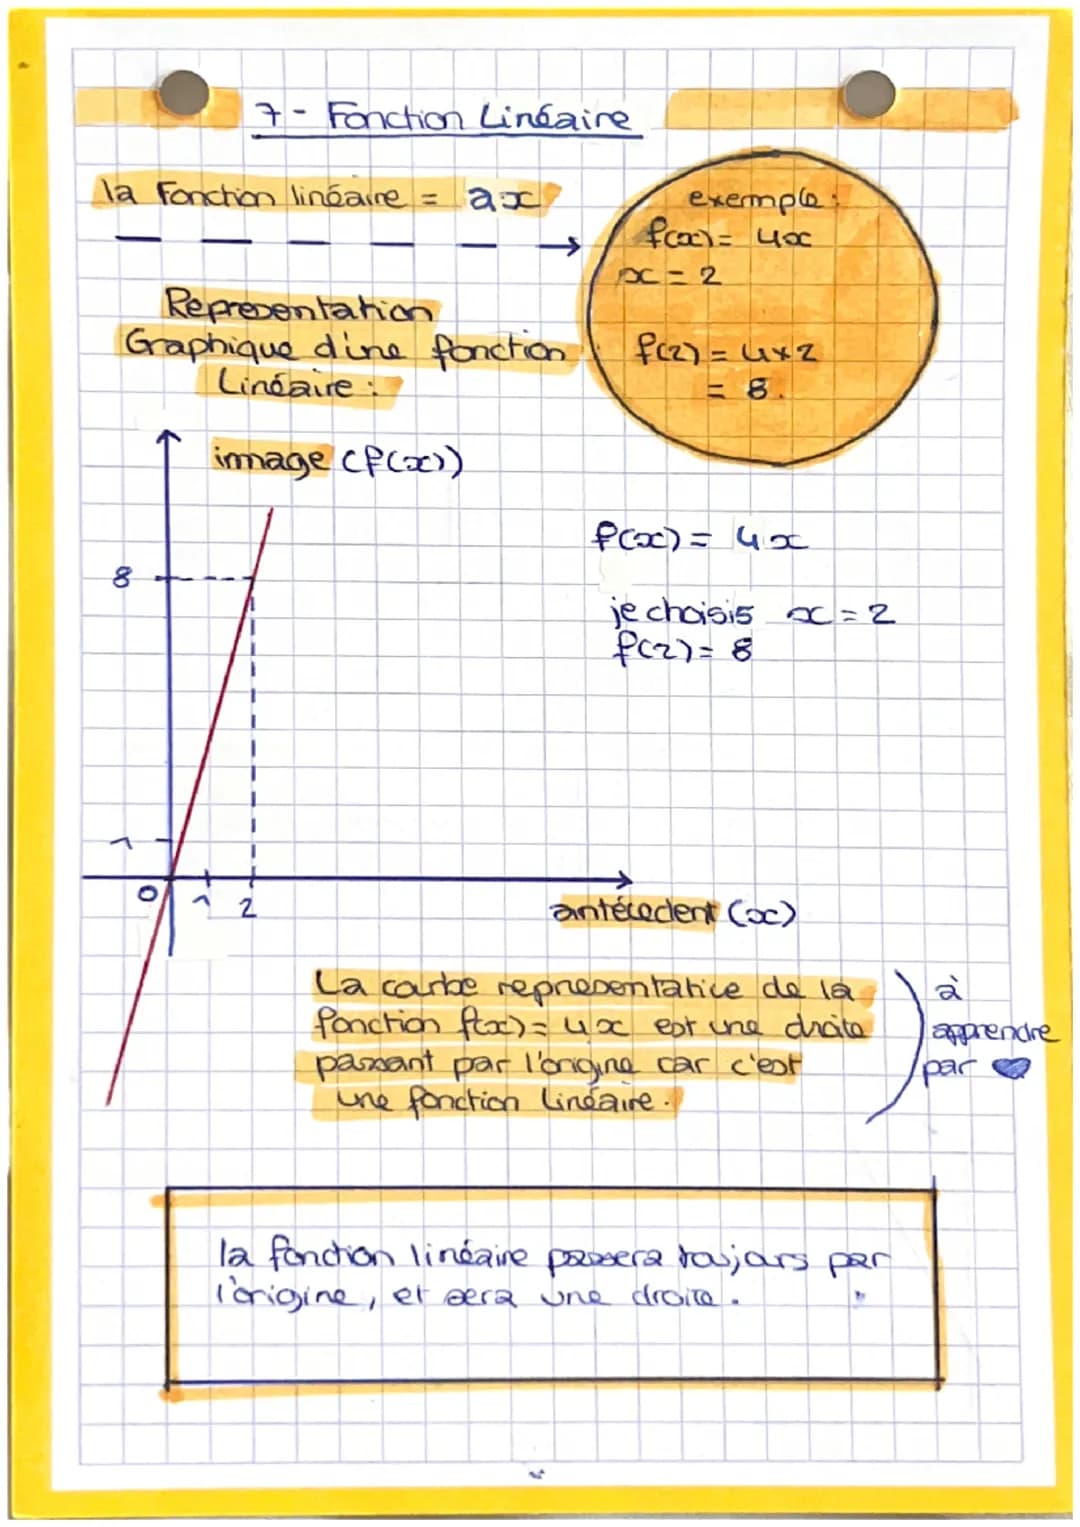 7 - Fonction Linéaire
la Fonction linéaire = ax
exemple :
f(x) = 4x
x = 2
f(2) = 4x2
= 8.
Representation
Graphique d'une fonction
Linéaire :
image (f(x))
8
1
0
1
2
antécedent (x)
f(x) = 4x
je choisis x = 2
f(2) = 8
La courbe representatice de la
fonction f(x) = 4x est une droite
passant par l'origine car c'est
une fonction linéaire.
à
apprendre
par
la fonction linéaire passera toujours par
l'origine, et sera une droite.